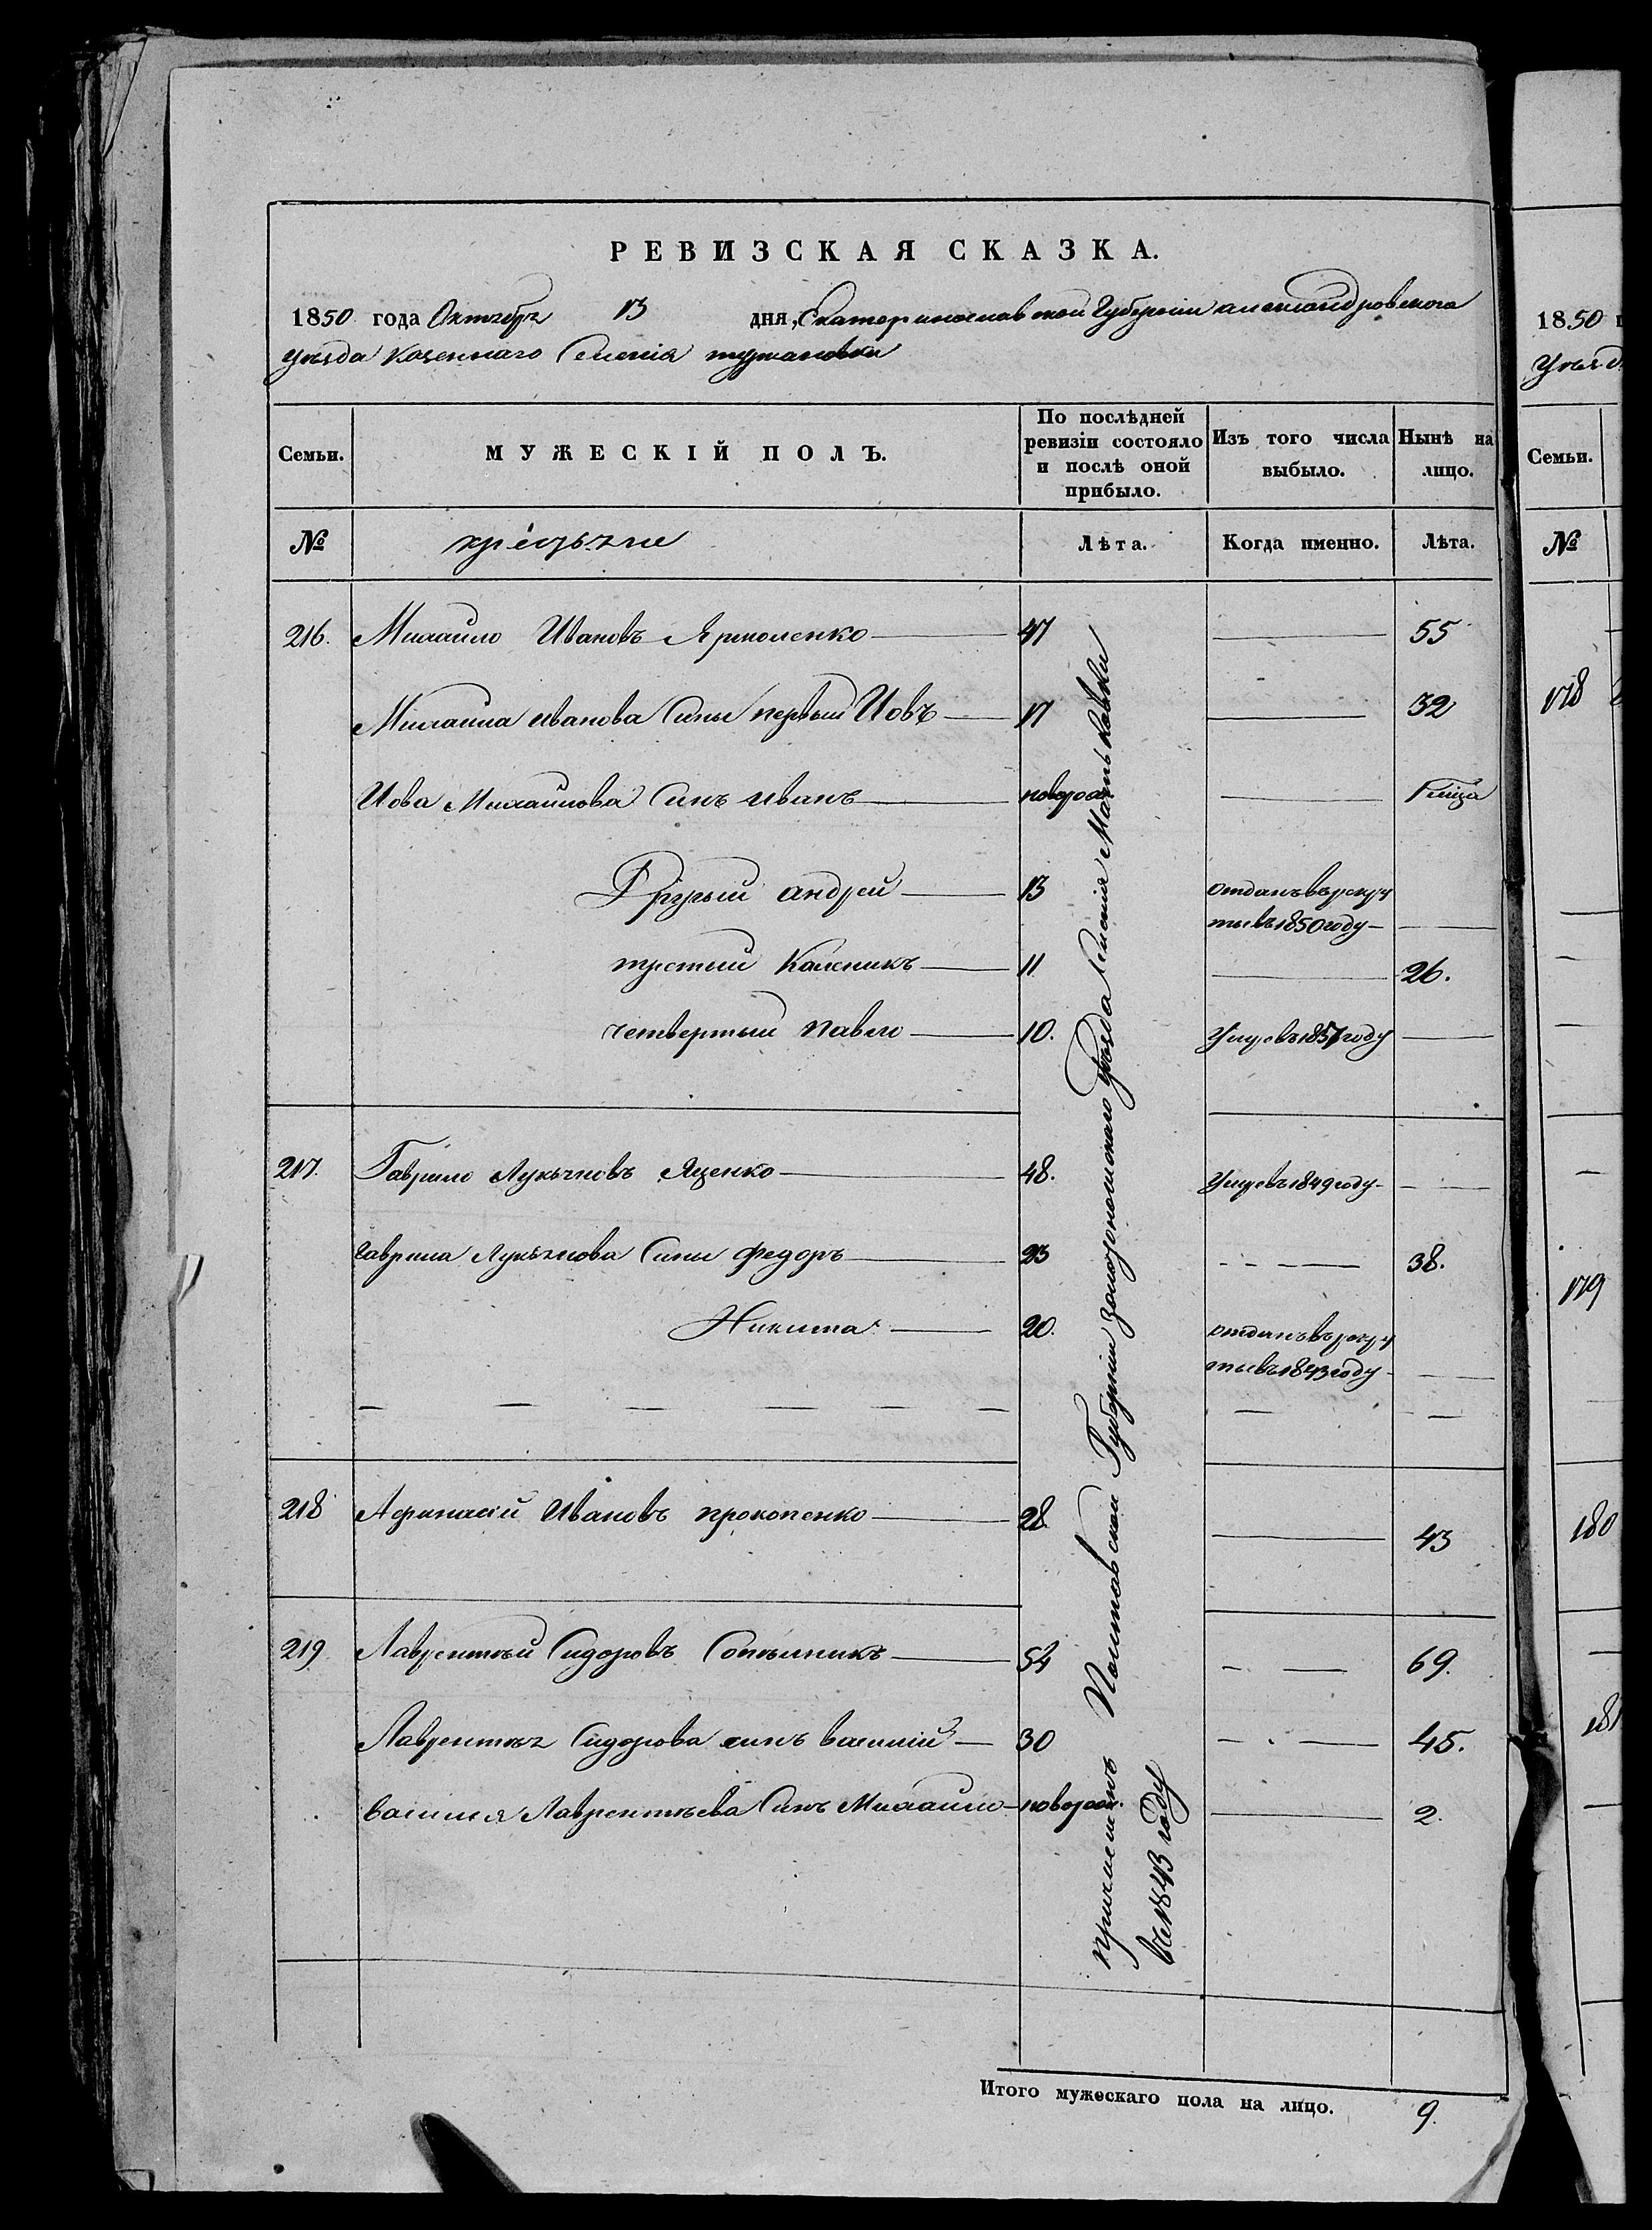 РЕВИЗСКАЯ СКАЗКА.
1850 года Октября 13 дня, Екатеринославской Губерніи александровского
уѣзда казеннаго Селенія
Семьи. МУЖЕСКІЙ ПОЛЪ. По послѣдней ревизіи состояло и послѣ оной прибыло. Изъ того числа выбыло. Нынѣ на лицо.
№ Лѣта. Когда именно. Лѣта.
216. Михайло Ивановъ Ярмоленко 47 55
Михайла иванова Сыны первый Иовъ 17 32
Иова Михайлова Сынъ иванъ новорож.
Другый андрей 13 отданъ въ рекру
ты въ 1850 году
третый Каленикъ 11 26.
четвертый павло 10. Умре въ году
217. Гаврило Лукьяновъ Яценко 48. Умре въ 1849 году
гаврила Лукьянова Сыны федоръ 23 38.
Никита 20. отданъ въ рекру
ты въ 1843 году
218 Афанасій Ивановъ прокопенко 28. 43
219 Лаврентѣй Сидоровъ Сотъникъ 54 69.
Лаврентѣя Сидорова сынъ василій 30 45.
василия Лаврентѣева Сынъ Михайло новорож. 2.
причисленъ Полтавской Губерніи золотоношского уѣзда Селенія
въ 1843 году
Итого мужескаго пола на лицо. 9.
1850
Уѣзд
Семьи.
№
178
179
180
181